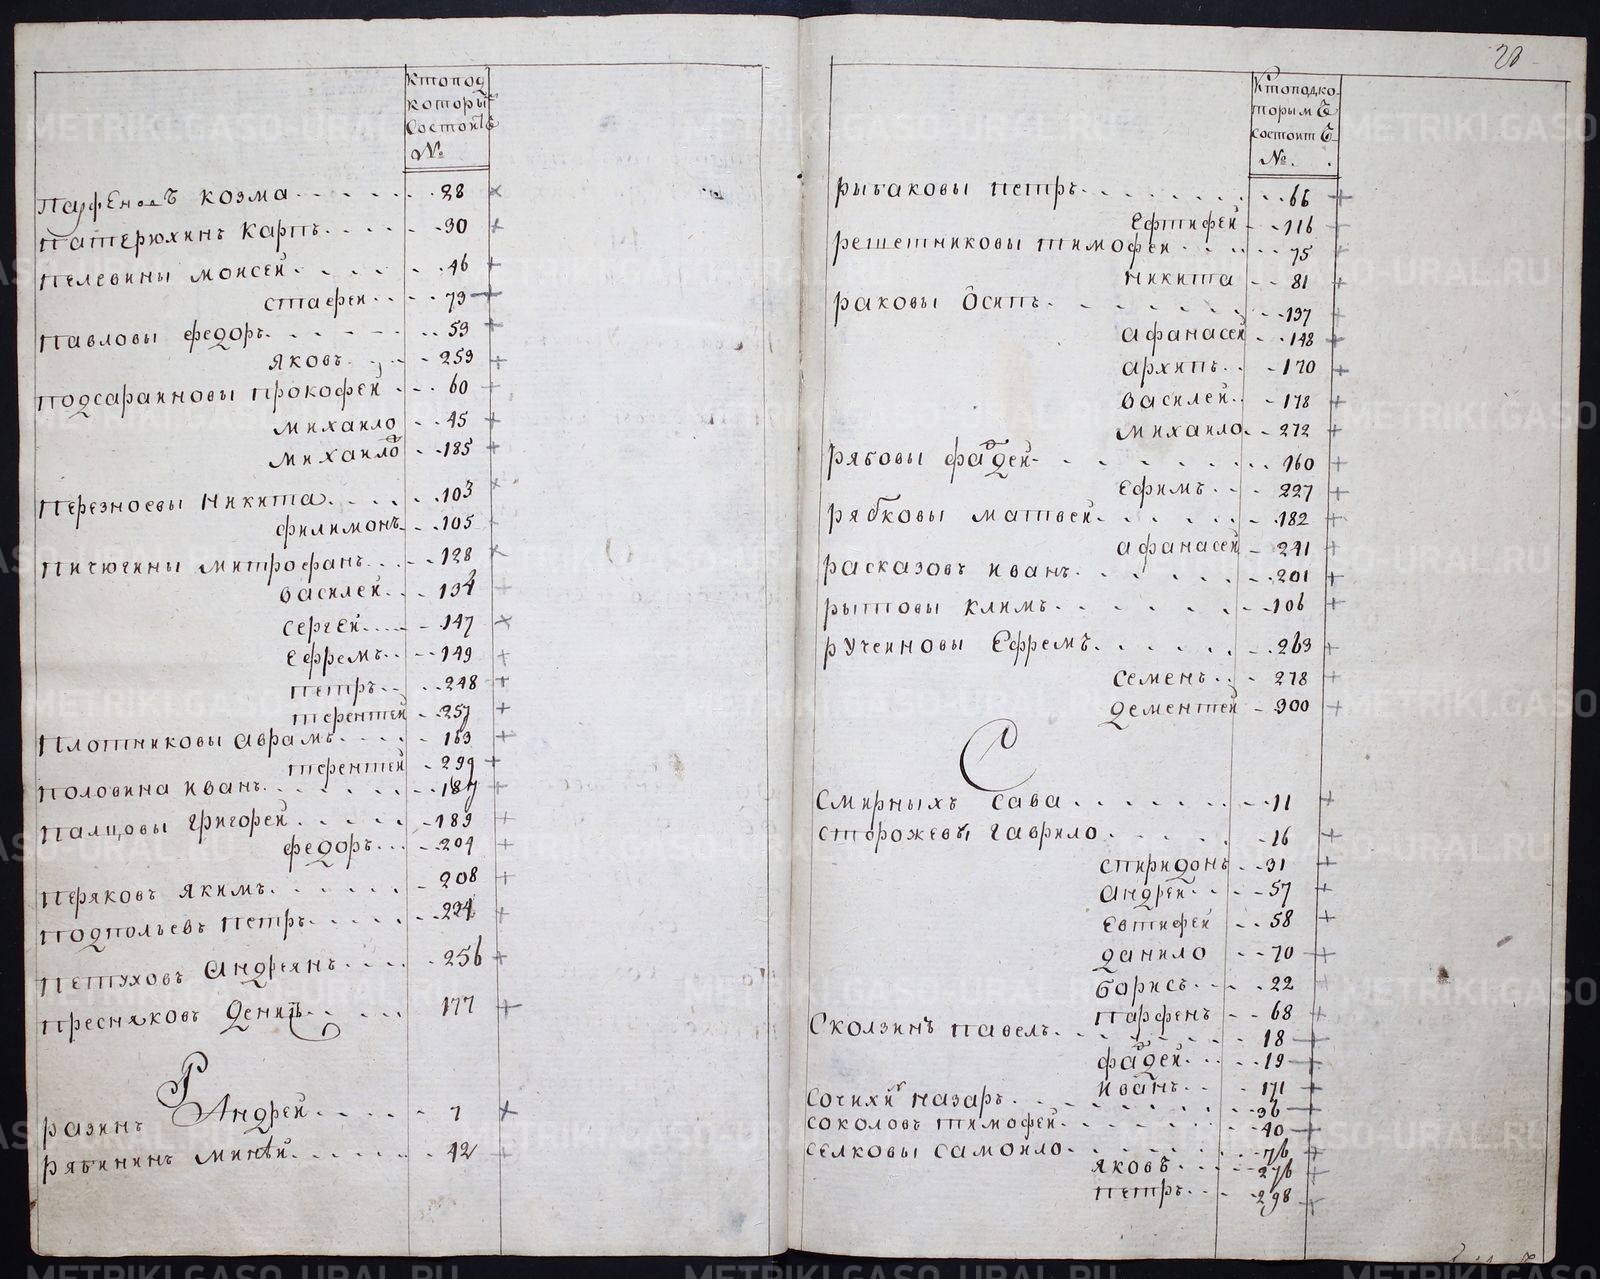 Ктопод
которы
состоитъ
№
Парфеновъ козма 28
Патерюхинъ Карпъ 30
Пелевины моисей 46
стафеи 79
Павловы федоръ 53
яковъ 259
Подсараиновы прокофеи 60
михаило 45
михаило 185
Перезноевы никита 103
филимонъ 105
Пичюгины митрофанъ 128
василеи 134
сергеи 147
Ефремъ 149
петръ 248
терентеи 257
Плотниковы аврамъ 163
терентеи 299
Половина иванъ 187
Палцовы григореи 189
федоръ 204
Перяковъ якимъ 208
Подпольевъ петръ 224
Петуховъ Андреянъ 256
Пресняковъ Денисъ 177
Р
Разинъ Андреи 7
Рябининъ минѣи 42
20
Ктоподко
торымъ
состоитъ
№
Рыбаковы петръ 66
Ефтифеи 116
Решетниковы тимофеи 75
никита 81
Раковы Осипъ 137
афанасеи 148
архипъ 170
василеи 178
михаило 272
Рябовы фадеи 160
Ефимъ 227
Рябковы матвеи 182
афанасеи 241
Расказовъ иванъ 201
Рытовы климъ 106
Ручеиновы Ефремъ 263
семенъ 278
дементеи 300
С
Смирныхъ сава 11
Сторожевы гаврило 16
спиридонъ 31
андреи 57
евтифеи 58
данило 70
борисъ 22
парфенъ 68
Сколзинъ павелъ 18
фадеи 19
иванъ 171
Сочихи назаръ 36
Соколовъ тимофеи 40
Селковы самоило 76
яковъ 276
петръ 298
METRIKI.GASO-URAL.RU